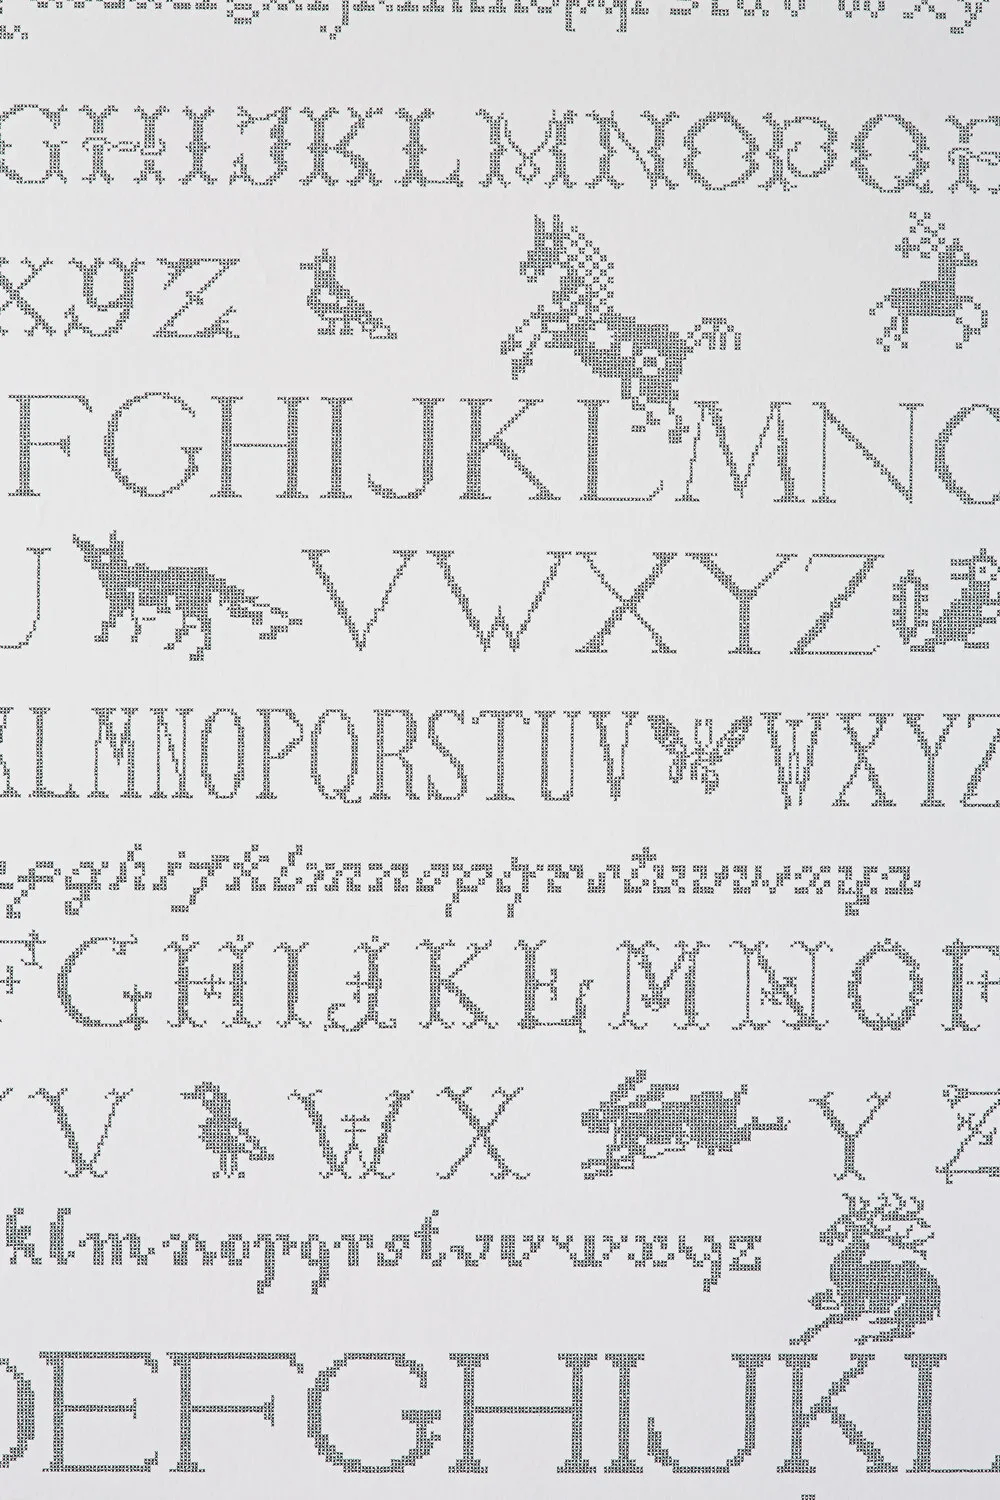 GHIJKLMNOPQR
XYZ
FGHIJKLMNO
U VWXYZ
KLMNOPQRSTUV WXYZ
efghijklmnopqrstuvwxyz
FGHIJKLMNOP
V W X Y Z
klmnopqrstuvwxyz
DEFGHIJKL